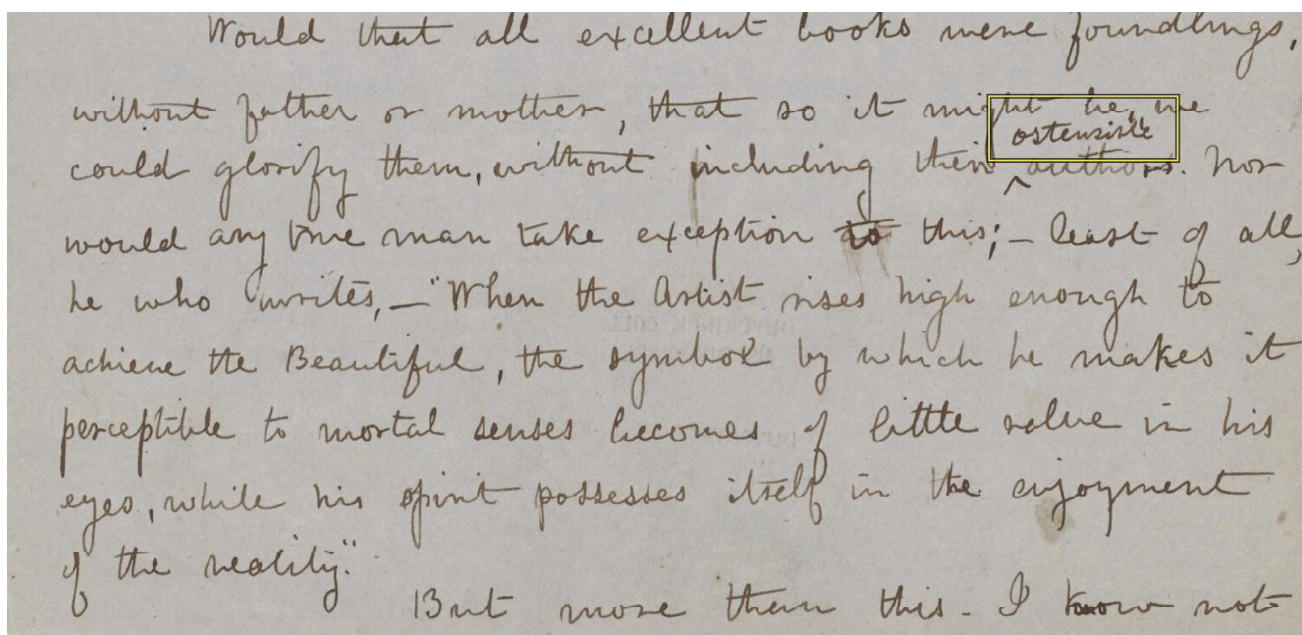 Would that all excellent books were foundlings,
without father or mother, that so it might be, we
ostensible
could glorify them, without including their ^ authors. Nor
would any true man take exception to this; — least of all,
he who writes, — "When the Artist rises high enough to
achieve the Beautiful, the symbol by which he makes it
perceptible to mortal senses becomes of little value in his
eyes, while his spirit possesses itself in the enjoyment
of the reality."
But more than this. I know not